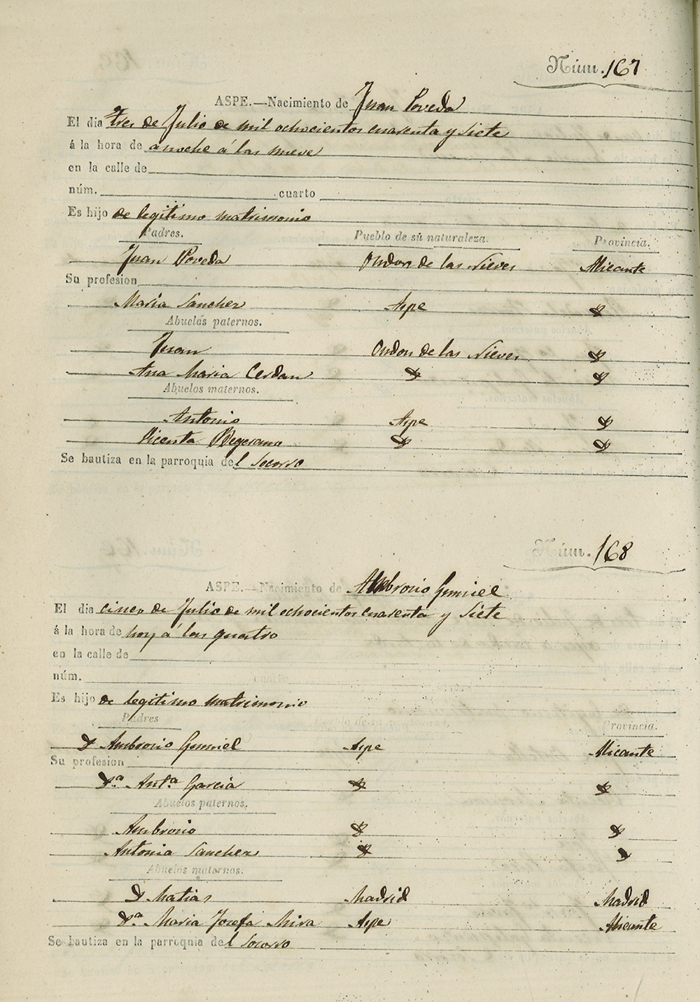 Núm. 167
ASPE.—Nacimiento de Juan Poveda
El dia tres de Julio de mil ochocientos cuarenta y siete
á la hora de anoche á las nueve
en la calle de
núm. cuarto
Es hijo de legitimo matrimonio
Padres. Pueblo de sú naturaleza. Provincia.
Juan Poveda Ondon de las Nieves Alicante
Su profesion
Maria Sanchez Aspe
Abuelos paternos.
Juan Ondon de las Nieves
Ana Maria Cerdan
Abuelos maternos.
Antonio Aspe
Vicenta
Se bautiza en la parroquia del Socorro
Núm. 168
ASPE.—Nacimiento de Ambrosio Gumiel
El dia cinco de Julio de mil ochocientos cuarenta y siete
á la hora de hoy á las quatro
en la calle de
núm.
Es hijo de legitimo matrimonio
Padres Provincia.
D Ambrosio Gumiel Aspe Alicante
Su profesion
Dª Antª Garcia
Abuelos paternos.
Ambrosio
Antonia Sanchez
Abuelos maternos.
D Matias Madrid Madrid
Dª Maria Josefa Mira Aspe Alicante
Se bautiza en la parroquia del Socorro